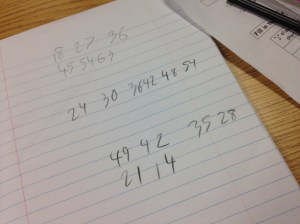 18 27 36
45 54 63
24 30 36 42 48 54
49 42 35 28
21 14